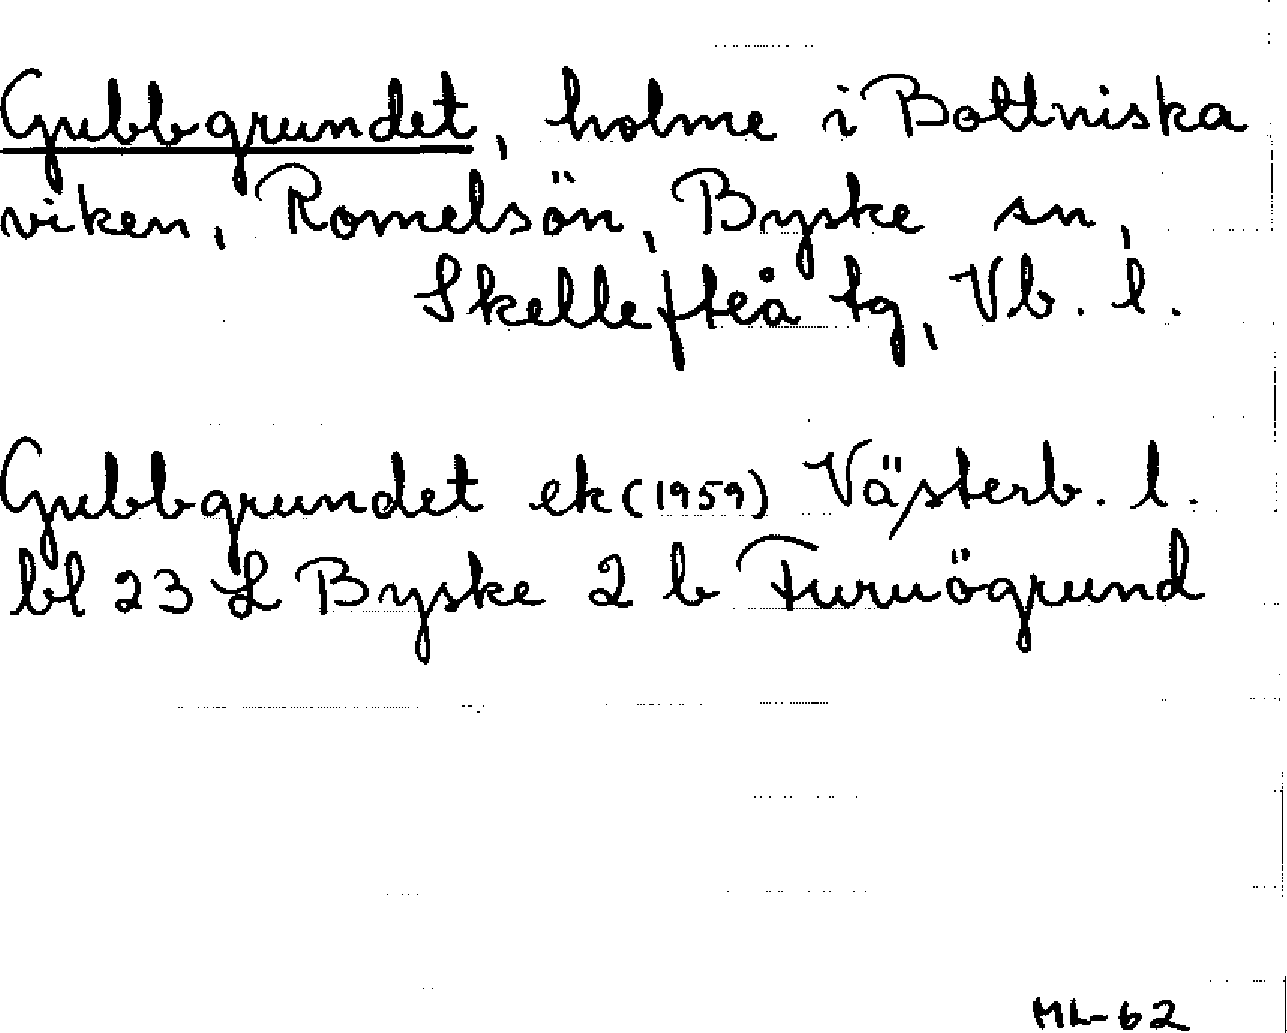 Gubbgrundet, holme i Bottniska
viken, Romelsön, Byske sn,
Skellefteå tg, Vb. l.
Gubbgrundet ek (1959) Västerb. l.
bl 23 L Byske 2 b Furuögrund
ML-62